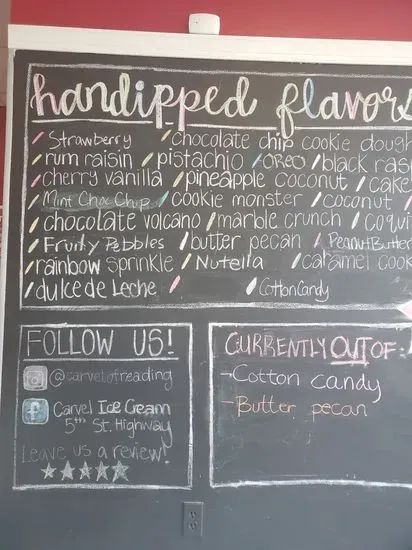 handipped flavors
/ Strawberry / chocolate chip cookie dough
/ rum raisin / pistachio / OREO / black ras
/ cherry vanilla / pineapple coconut / cake
/ Mint Choc Chip / cookie monster / coconut /
/ chocolate volcano / marble crunch / coqui
/ Fruity Pebbles / butter pecan / PeanutButter
/ rainbow sprinkle / Nutella / caramel cook
/ dulce de Leche / / Cotton Candy
FOLLOW US!
@carvelofreading
Carvel Ice Cream
5th St. Highway
Leave us a review!
CURRENTLY OUT OF:
-Cotton candy
-Butter pecan